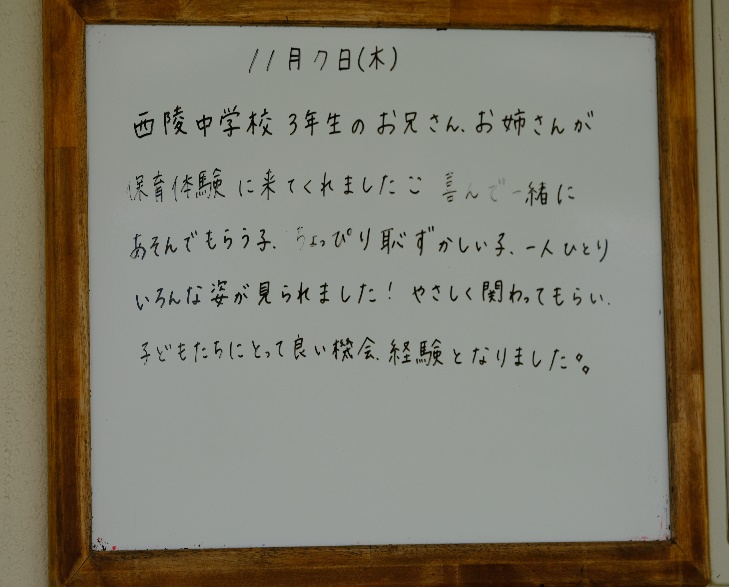 11月7日(木)
西陵中学校3年生のお兄さん、お姉さんが
保育体験に来てくれました 喜んで一緒に
あそんでもらう子、ちょっぴり恥ずかしい子、一人ひとり
いろんな姿が見られました！やさしく関わってもらい、
子どもたちにとって良い機会、経験となりました。